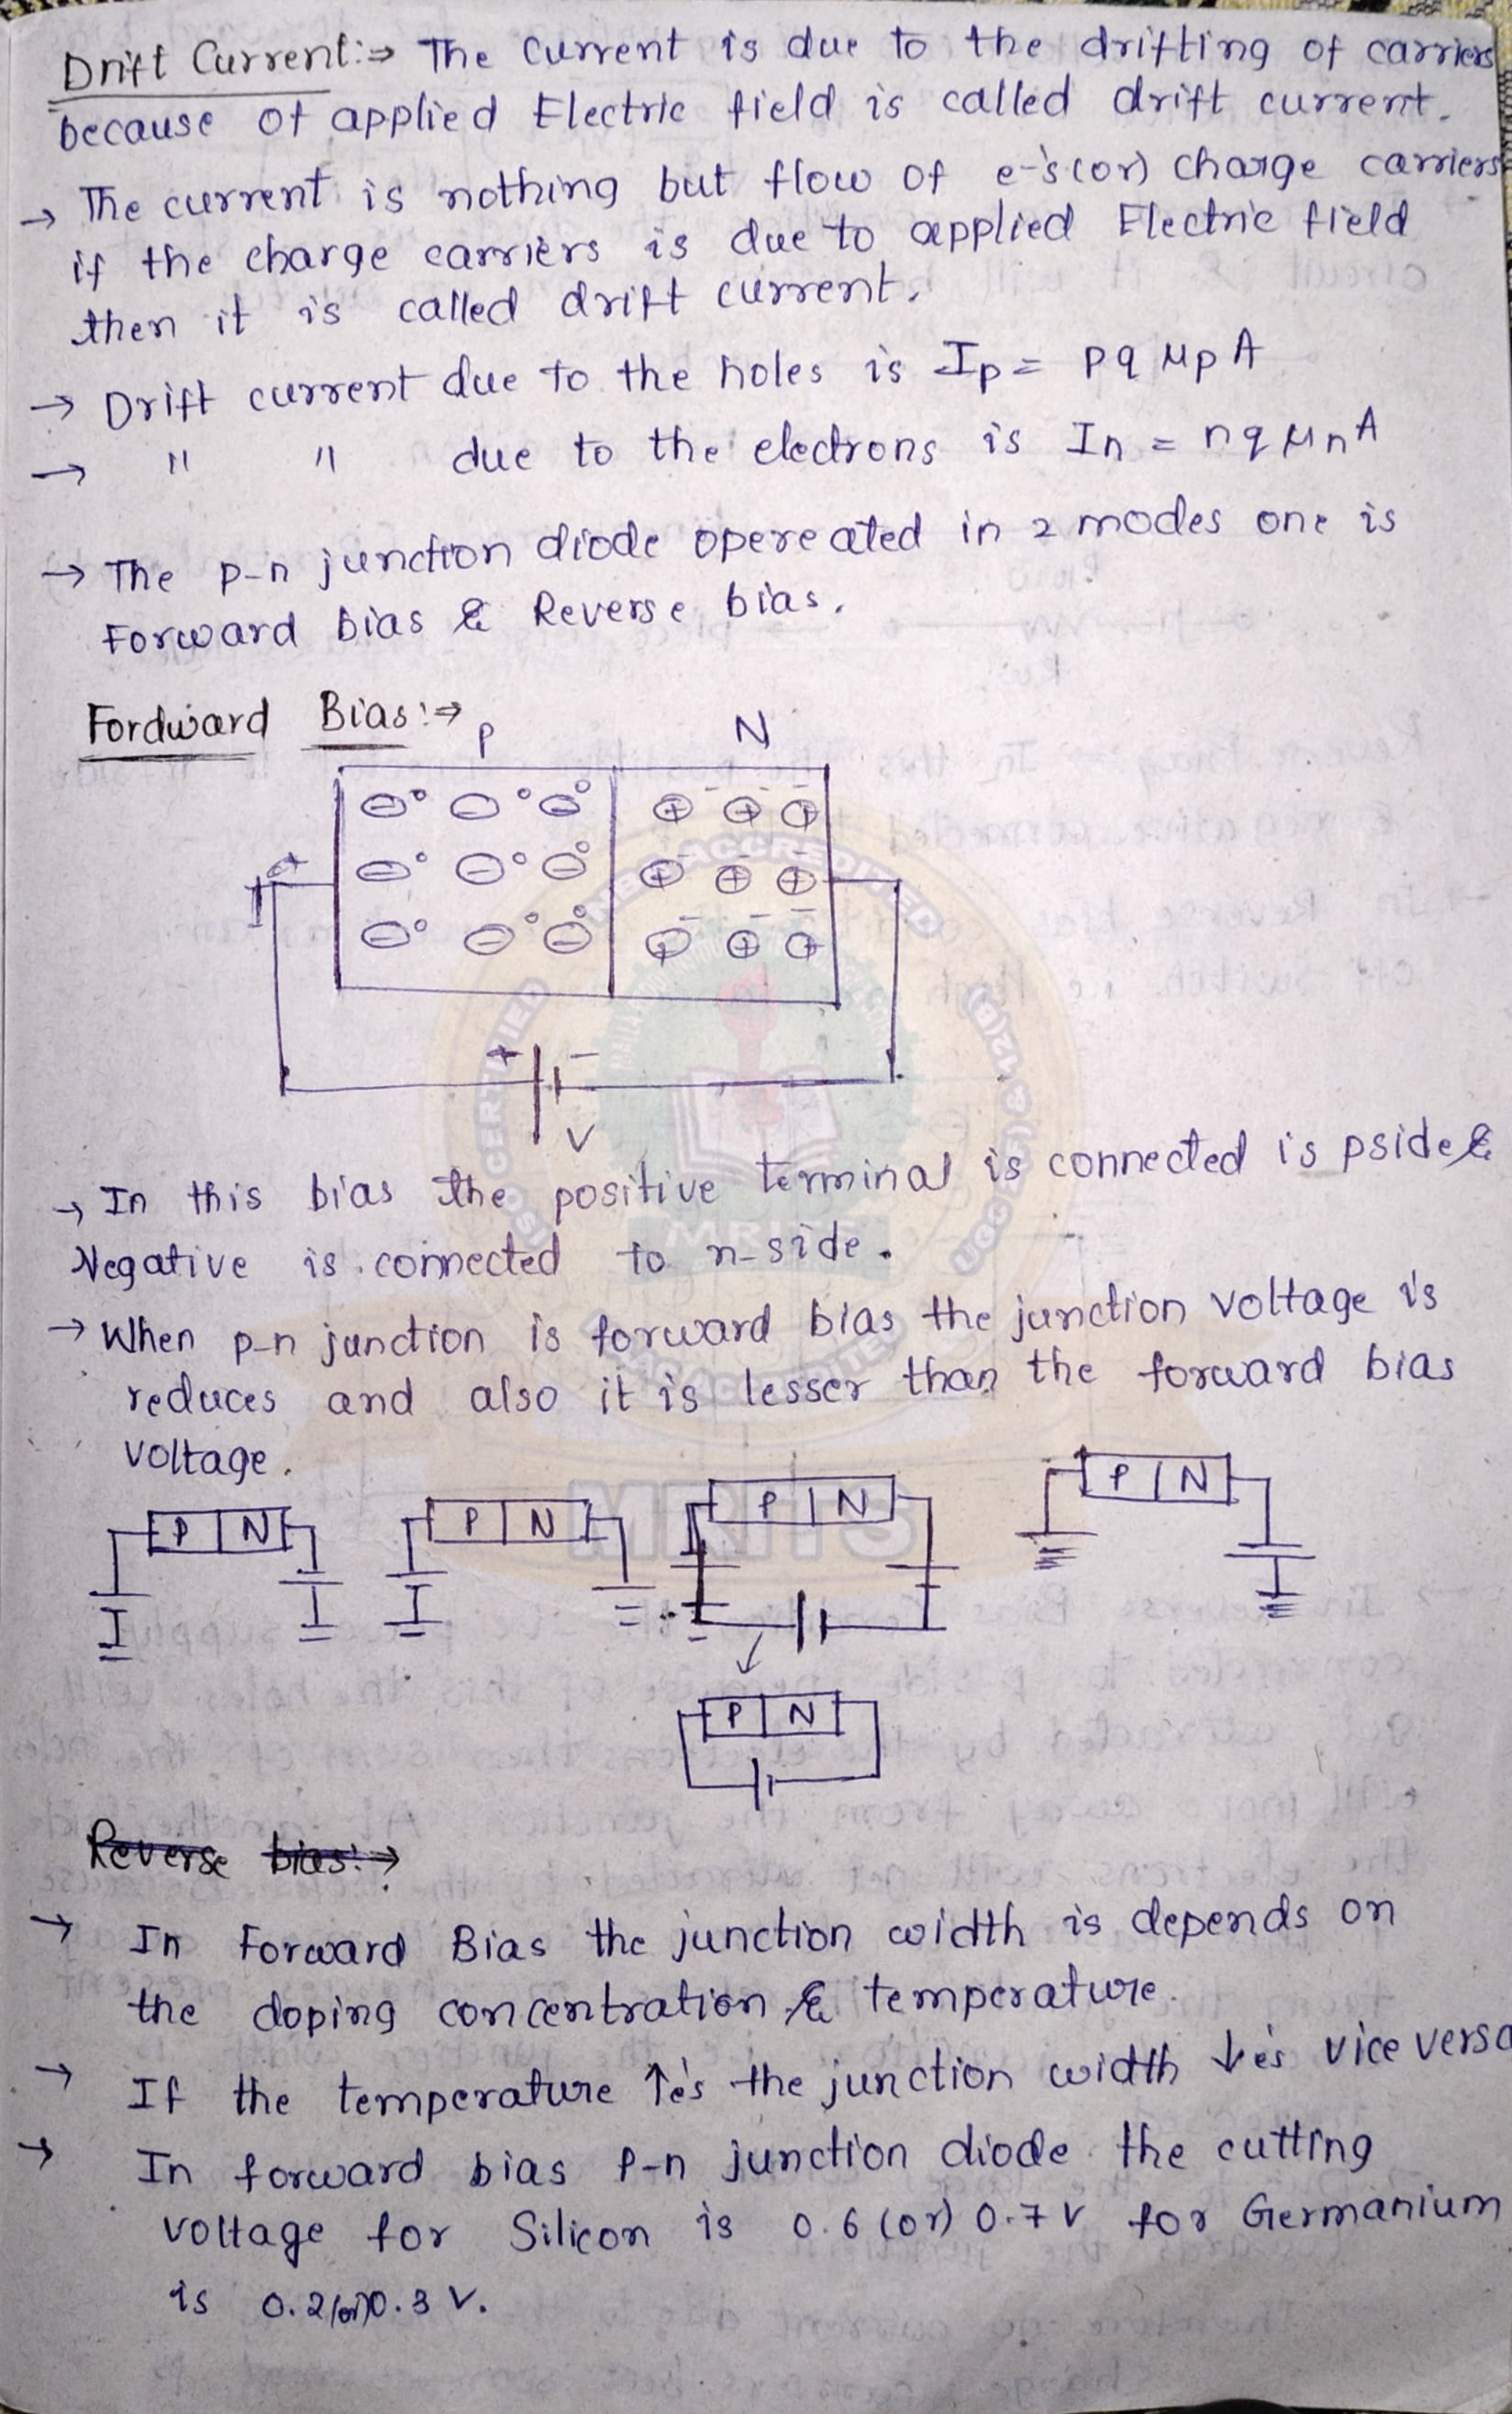 Drift Current:⇒ The current is due to the drifting of carriers
because of applied Electric field is called drift current.
→ The current is nothing but flow of e-'s (or) charge carriers
if the charge carriers is due to applied Electric field
then it is called drift current.
→ Drift current due to the holes is Ip = pqμpA
→ " " due to the electrons is In = nqμnA
→ The p-n junction diode opereated in 2 modes one is
Forward bias & Reverse bias.
Fordward Bias:⇒
P N
+
+ −
V
→ In this bias the positive terminal is connected is pside &
Negative is connected to n-side.
→ When p-n junction is forward bias the junction voltage is
reduces and also it is lesser than the forward bias
voltage.
P N P N P N P N
P N
Reverse bias:→
→ In Forward Bias the junction width is depends on
the doping concentration & temperature.
→ If the temperature ↑es the junction width ↓es vice versa
→ In forward bias P-n junction diode the cutting
voltage for Silicon is 0.6 (or) 0.7 V for Germanium
is 0.2 (or) 0.3 V.
MRITS
ACCREDITED
ISO CERTIFIED